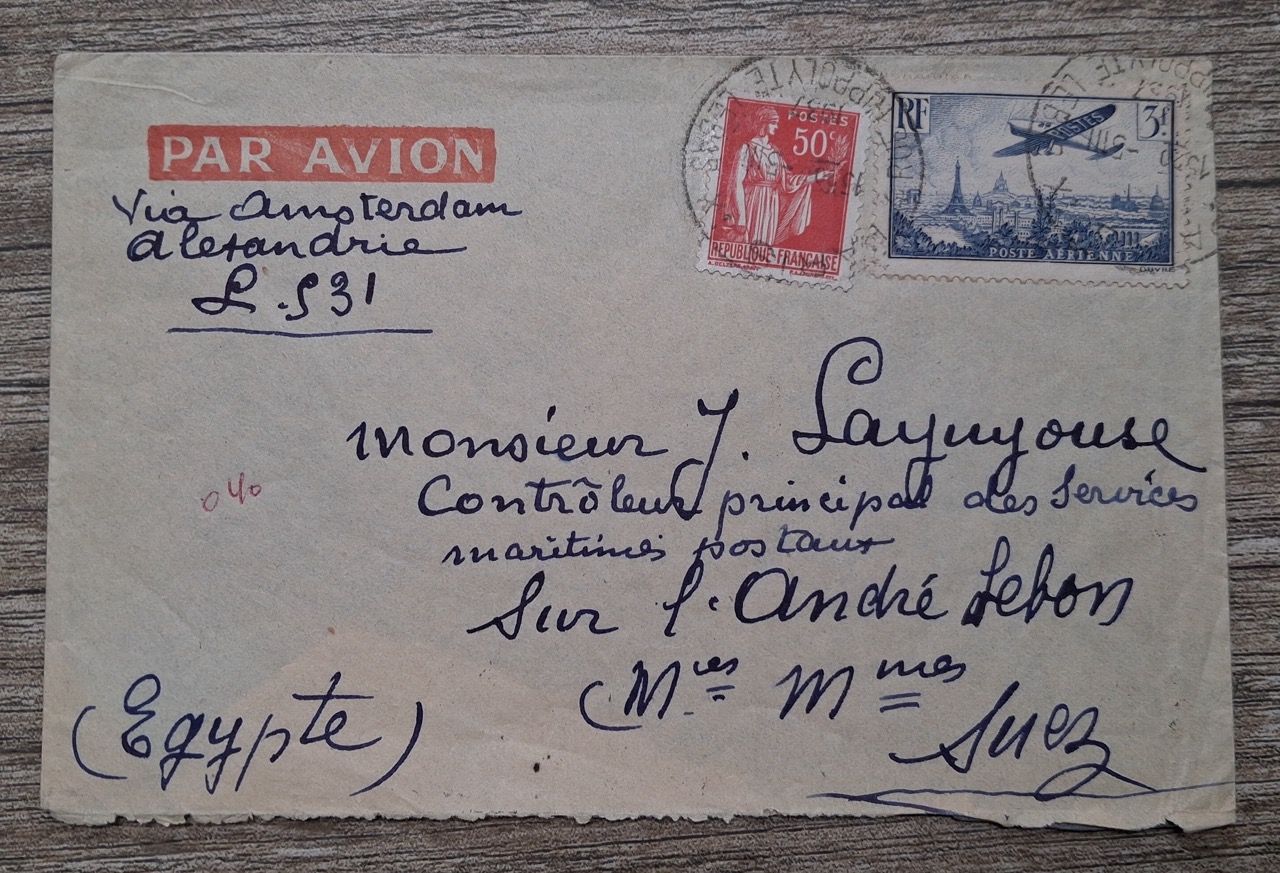 PAR AVION
Via Amsterdam
Alexandrie
L. 531
POSTES
50c
REPUBLIQUE FRANÇAISE
RF
POSTES
3f
POSTE AÉRIENNE
Monsieur J. Layuyouse
Contrôleur principal des Services
maritimes postaux
Sur l'André Lebon
(Mies Mmes
Suez
(Egypte)
040